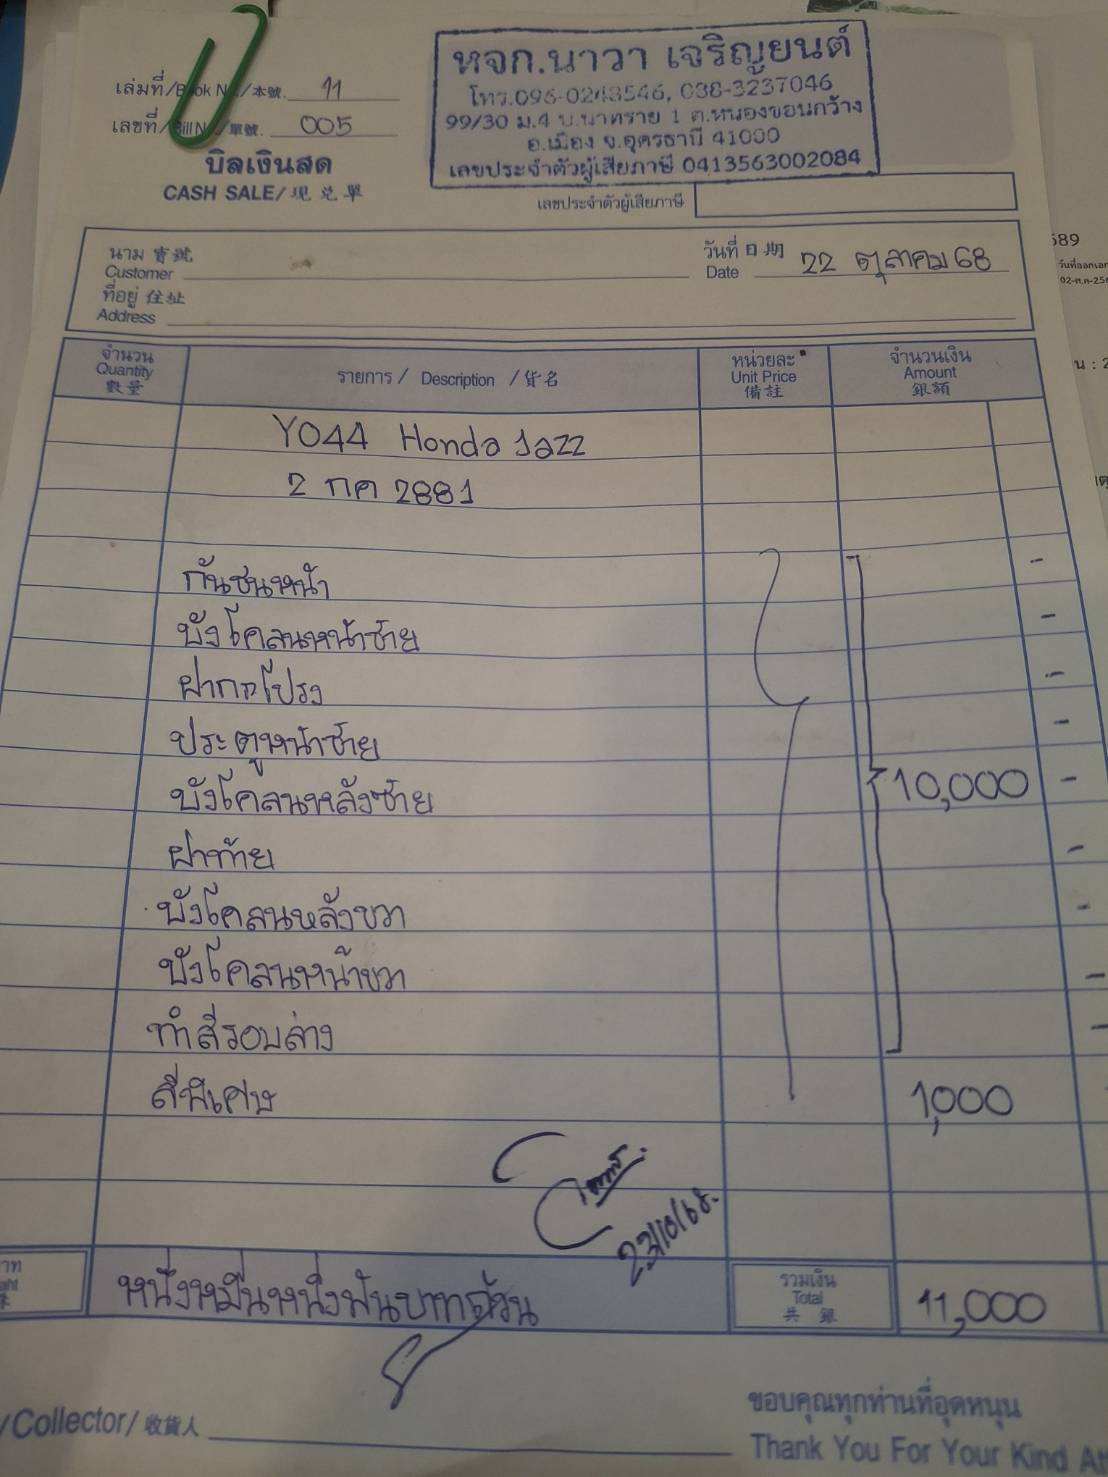 หจก.นาวา เจริญยนต์
โทร.096-0243546, 038-3237046
99/30 ม.4 บ.นาทราย 1 ต.หนองขอนกว้าง
อ.เมือง จ.อุดรธานี 41000
เลขประจำตัวผู้เสียภาษี 0413563002084
เล่มที่/Book N /本號. 11
เลขที่/Bill N /單號. 005
บิลเงินสด
CASH SALE/現兌單
เลขประจำตัวผู้เสียภาษี
นาม 寶號
Customer
วันที่ 日期
Date 22 ตุลาคม 68
ที่อยู่ 住址
Address
จำนวน
Quantity
數量
รายการ / Description / 貨名
หน่วยละ
Unit Price
備註
จำนวนเงิน
Amount
銀額
Y044 Honda Jazz
2 กค 2881
กันชนหน้า -
บังโคลนหน้าซ้าย -
ฝากระโปรง -
ประตูหน้าซ้าย -
บังโคลนหลังซ้าย 10,000 -
ฝาท้าย -
บังโคลนหลังขวา -
บังโคลนหน้าขวา -
ทำสีรอบล่าง -
สีพิเศษ 1,000
23/10/68.
หนึ่งหมื่นหนึ่งพันบาทถ้วน
รวมเงิน
Total
共銀
11,000
/Collector/收貨人
ขอบคุณทุกท่านที่อุดหนุน
Thank You For Your Kind
589
02-ต.ค-256
น : 2